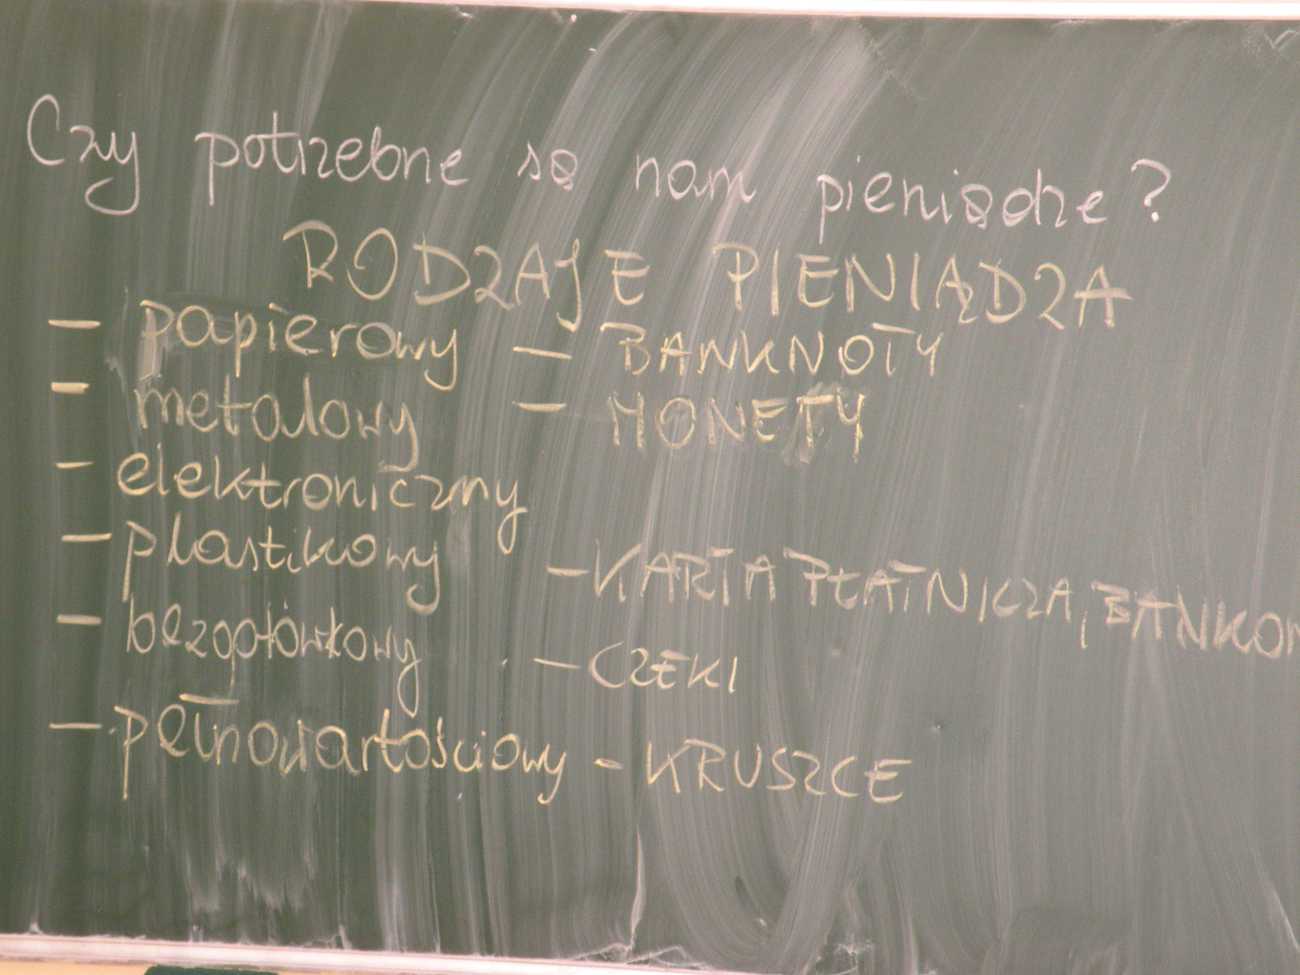 Czy potrzebne są nam pieniądze?
RODZAJE PIENIĄDZA
- papierowy - BANKNOTY
- metalowy - MONETY
- elektroniczny
- plastikowy - KARTA PŁATNICZA, BANKOM
- bezgotówkowy - CZEKI
- pełnowartościowy - KRUSZCE